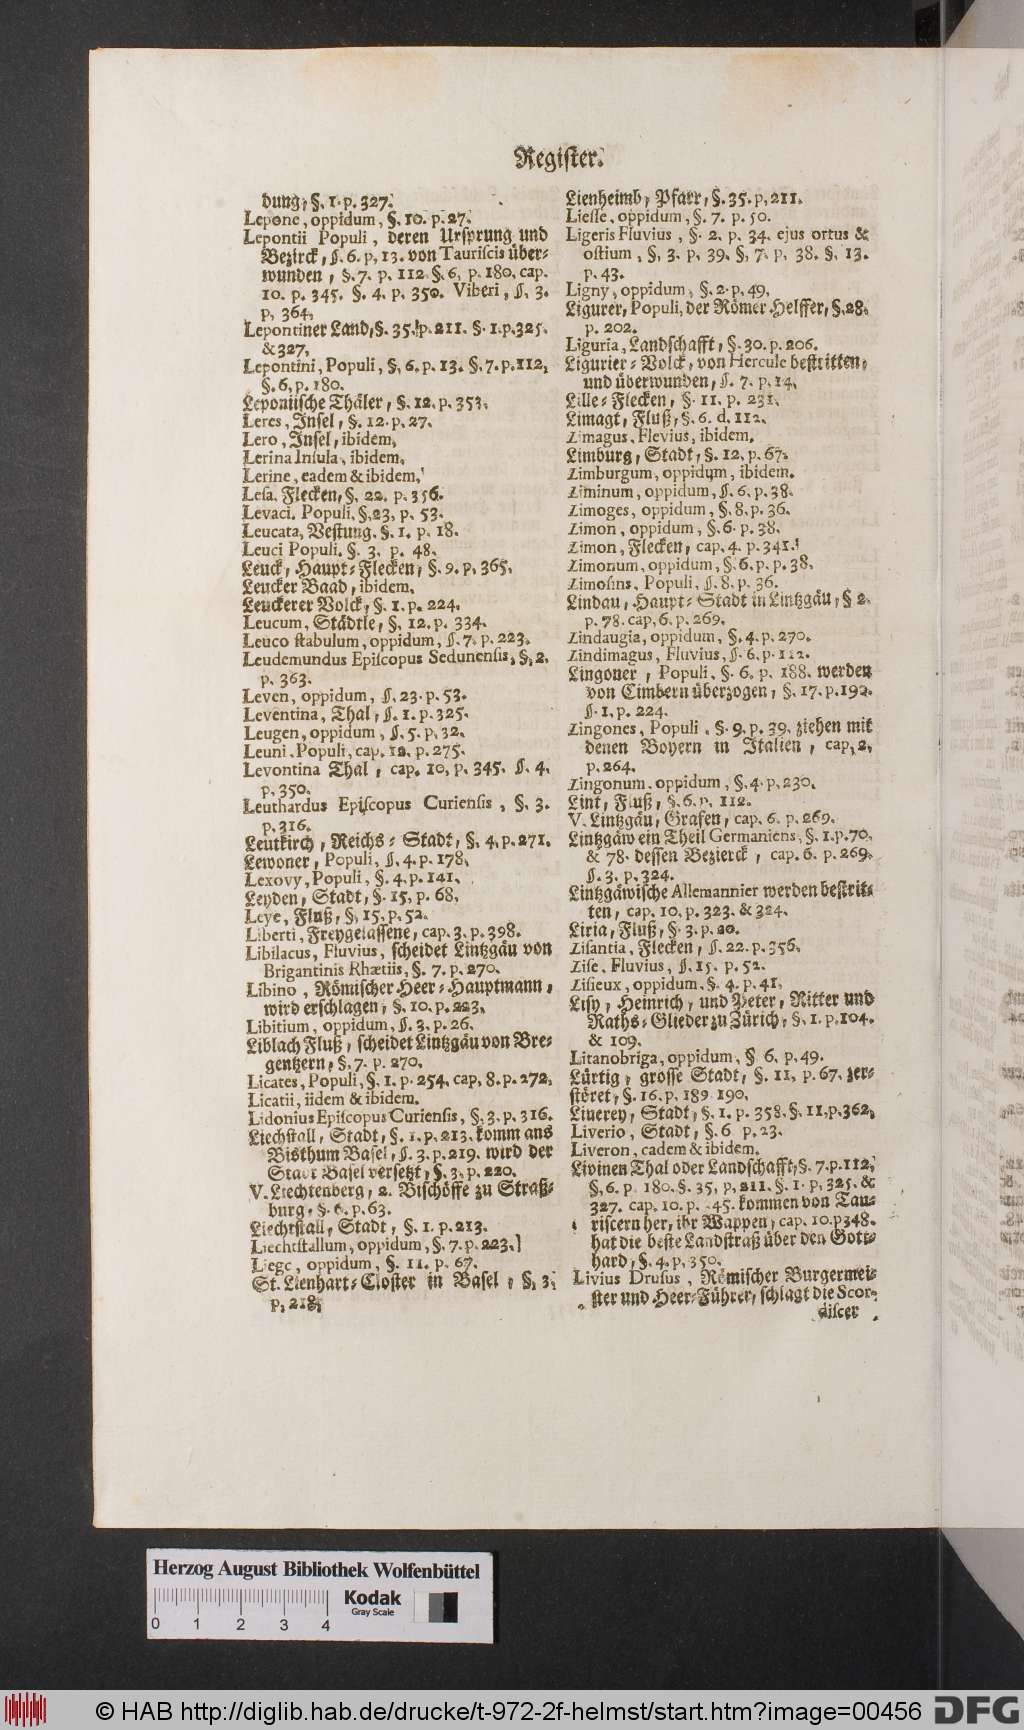 Regiſter.
dung, §. 1. p. 327.
Lepone, oppidum, §. 10. p. 27.
Lepontii Populi, deren Urſprung und
Bezirck, §. 6. p. 13. von Tauriſcis über-
wunden, §. 7. p. 112. §. 6. p. 180. cap.
10. p. 345. §. 4. p. 350. Viberi, §. 3.
p. 364.
Lepontiner Land, §. 35. p. 211. §. 1. p. 325.
& 327.
Lepontini, Populi, §. 6. p. 13. §. 7. p. 112,
§. 6. p. 180.
Leponiſche Thäler, §. 12. p. 353.
Leres, Inſel, §. 12. p. 27.
Lero, Inſel, ibidem.
Lerina Inſula, ibidem.
Lerine, eadem & ibidem.
Leſa, Flecken, §. 22. p. 356.
Levaci, Populi, §. 23. p. 53.
Leucata, Veſtung, §. 1. p. 18.
Leuci Populi. §. 3. p. 48.
Leuck, Haupt-Flecken, §. 9. p. 365.
Leucker Baad, ibidem.
Leuckerer Volck, §. 1. p. 224.
Leucum, Städtle, §. 12. p. 334.
Leuco ſtabulum, oppidum, §. 7. p. 223.
Leudemundus Epiſcopus Sedunenſis, §. 2.
p. 363.
Leven, oppidum, §. 23. p. 53.
Leventina, Thal, §. 1. p. 325.
Leugen, oppidum, §. 5. p. 32.
Leuni, Populi, cap. 12. p. 275.
Levontina Thal, cap. 10. p. 345. §. 4.
p. 350.
Leuthardus Epiſcopus Curienſis, §. 3.
p. 316.
Leutkirch, Reichs-Stadt, §. 4. p. 271.
Lewoner, Populi, §. 4. p. 178.
Lexovy, Populi, §. 4. p. 141.
Leyden, Stadt, §. 15. p. 68.
Leye, Fluß, §. 15. p. 52.
Liberti, Freygelaſſene, cap. 3. p. 398.
Libilacus, Fluvius, ſcheidet Lintzgäu von
Brigantinis Rhætiis, §. 7. p. 270.
Libino, Römiſcher Heer-Hauptmann,
wird erſchlagen, §. 10. p. 223.
Libitium, oppidum, §. 3. p. 26.
Liblach Fluß, ſcheidet Lintzgäu von Bre-
gentzern, §. 7. p. 270.
Licates, Populi, §. 1. p. 254. cap. 8. p. 272.
Licatii, iidem & ibidem.
Lidonius Epiſcopus Curienſis, §. 3. p. 316.
Liechſtall, Stadt, §. 1. p. 213. komm ans
Bisthum Baſel, §. 3. p. 219. wird der
Stadt Baſel verſetzt, §. 3. p. 220.
V. Liechtenberg, 2. Biſchöffe zu Straß-
burg, §. 6. p. 63.
Liechtſtall, Stadt, §. 1. p. 213.
Liechtſtallum, oppidum, §. 7. p. 223.]
Liege, oppidum, §. 11. p. 67.
St. Lienhart-Cloſter in Baſel, §. 3.
p. 218.
Lienheimb, Pfarr, §. 35. p. 211.
Lieſſe, oppidum, §. 7. p. 50.
Ligeris Fluvius, §. 2. p. 34. ejus ortus &
oſtium, §. 3. p. 39. §. 7. p. 38. §. 13.
p. 43.
Ligny, oppidum, §. 2. p. 49.
Ligurer, Populi, der Römer Helffer, §. 28.
p. 202.
Liguria, Landſchafft, §. 30. p. 206.
Ligurier-Volck, von Hercule beſtritten,
und überwunden, §. 7. p. 14.
Lille-Flecken, §. 11. p. 231.
Limagt, Fluß, §. 6. d. 112.
Limagus, Flevius, ibidem.
Limburg, Stadt, §. 12. p. 67.
Limburgum, oppidum, ibidem.
Liminum, oppidum, §. 6. p. 38.
Limoges, oppidum, §. 8. p. 36.
Limon, oppidum, §. 6. p. 38.
Limon, Flecken, cap. 4. p. 341.
Limonum, oppidum, §. 6. p. p. 38.
Limoſins, Populi, §. 8. p. 36.
Lindau, Haupt-Stadt in Lintzgäu, § 2.
p. 78. cap. 6. p. 269.
Lindaugia, oppidum, §. 4. p. 270.
Lindimagus, Fluvius, §. 6. p. 112.
Lingoner, Populi, §. 6. p. 188. werden
von Cimbern überzogen, §. 17. p. 192.
§. 1. p. 224.
Lingones, Populi, §. 9. p. 39. ziehen mit
denen Boyern in Italien, cap. 2.
p. 264.
Lingonum, oppidum, §. 4. p. 230.
Lint, Fluß, §. 6. p. 112.
V. Lintzgäu, Grafen, cap. 6. p. 269.
Lintzgäw ein Theil Germaniens, §. 1. p. 70.
& 78. deſſen Bezierck, cap. 6. p. 269.
§. 3. p. 324.
Lintzgäwiſche Allemannier werden beſtrit-
ten, cap. 10. p. 323. & 324.
Liria, Fluß, §. 3. p. 20.
Liſantia, Flecken, §. 22. p. 356.
Liſe, Fluvius, §. 15. p. 52.
Liſieux, oppidum, §. 4. p. 41.
Liſy, Heinrich, und Peter, Ritter und
Raths-Glieder zu Zürich, §. 1. p. 104.
& 109.
Litanobriga, oppidum, § 6. p. 49.
Lürtig, groſſe Stadt, §. 11. p. 67. zer-
ſtöret, §. 16. p. 189 190.
Liverey, Stadt, §. 1. p. 358. §. 11. p. 362.
Liverio, Stadt, §. 6 p. 23.
Liveron, eadem & ibidem.
Livinen Thal oder Landſchafft, §. 7. p. 112.
§. 6. p. 180. §. 35. p. 211. §. 1. p. 325. &
327. cap. 10. p. 45. kommen von Tau-
riſcern her, ihr Wappen, cap. 10. p 348.
hat die beſte Landſtraß über den Gott-
hard, §. 4. p. 350.
Livius Druſus, Römiſcher Burgermei-
ſter und Heer-Führer, ſchlagt die Scor-
diſcer
Herzog August Bibliothek Wolfenbüttel
0 1 2 3 4
Kodak
Gray Scale
© HAB http://diglib.hab.de/drucke/t-972-2f-helmst/start.htm?image=00456
DFG